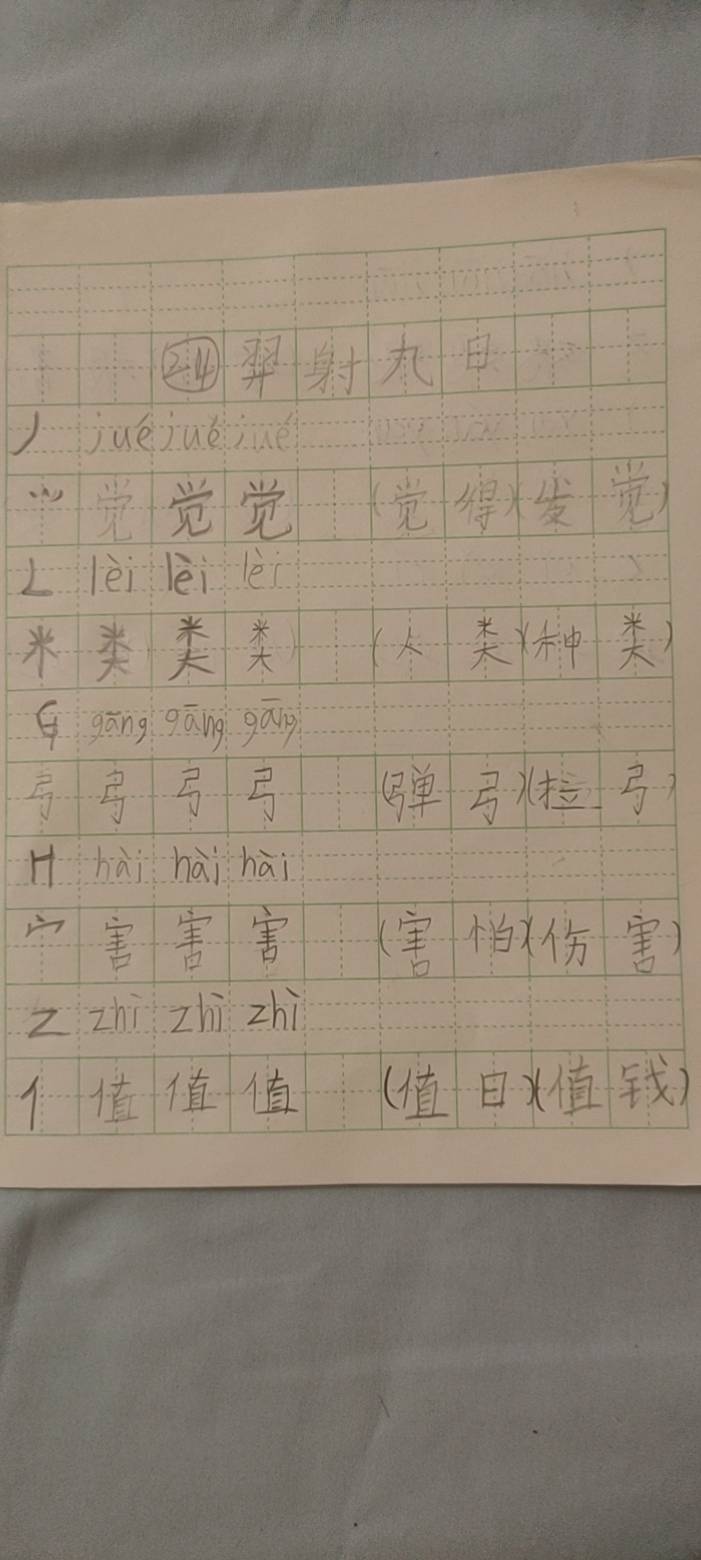 24 羿射九日
J jué jué jué
⺍ 觉 觉 觉 (觉得)(发觉)
L lèi lèi lèi
米 类 类 类 (人类)(种类)
G gāng gāng gāng
弓 弓 弓 弓 (弹弓)(拉弓)
H hài hài hài
宀 害 害 害 (害怕)(伤害)
Z zhí zhì zhì
亻 值 值 值 (值日)(值钱)